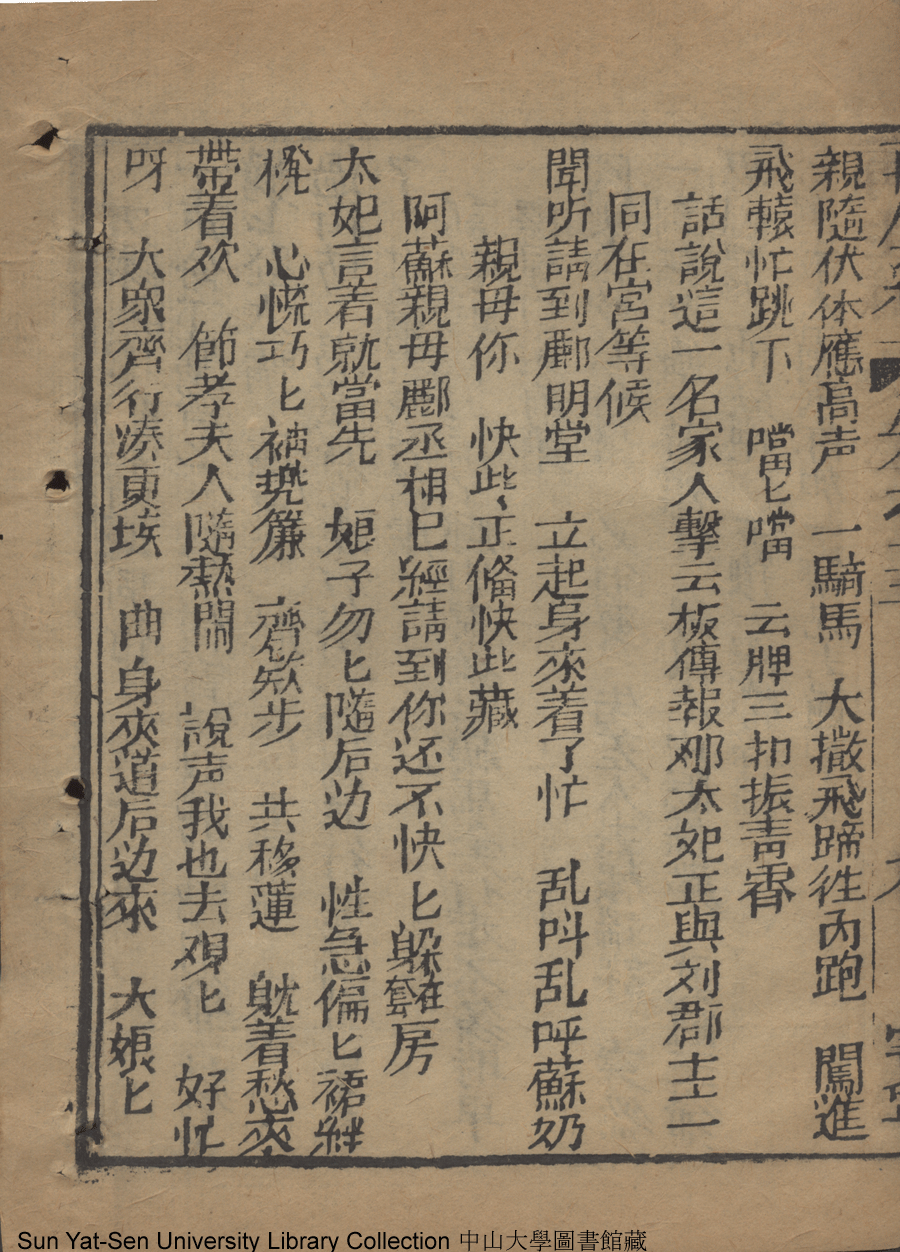 親隨伏体應高声　一騎馬　大撒飛蹄徃内跑　闖進
飛轅忙跳下　噹匕噹　云牌三扣振青霄
話說這一名家人擊云板傳報那太妃正與刘郡主一
同在宮等候
聞听請到酈明堂　立起身來着了忙　乱呌乱呼蘇奶
親母你　快些、正俻快些藏
阿蘇親母酈丞相已經請到你还不快匕躲在套房
太妃言着就當先　娘子勿匕隨后边　性急偏匕裙絆
心慌巧匕袖兠簾　齊欵步　共移蓮　躭着愁來
帶着欢　節孝夫人隨熱閙　說声我也去覌匕　好忙
呀　大衆齊行凑更埃　曲身夾道后边來　大娘匕
Sun Yat-Sen University Library Collection 中山大學圖書館藏